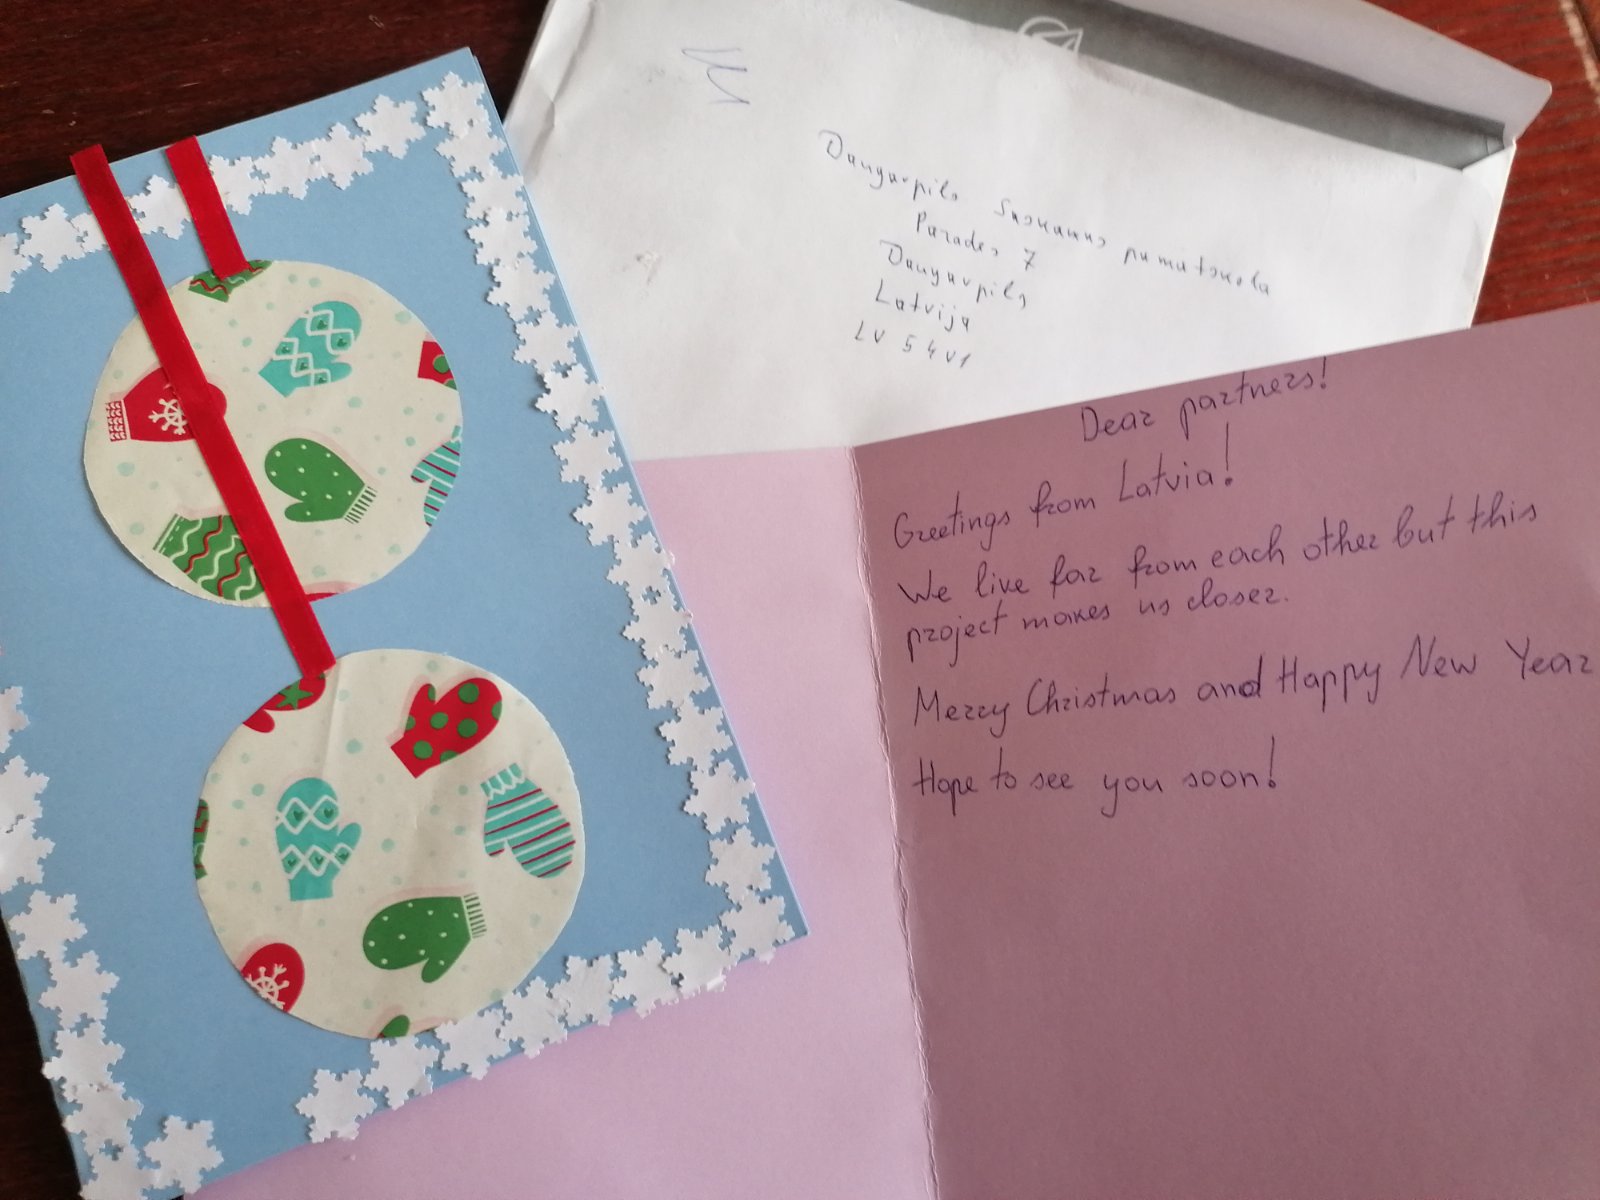 Daugavpils Saskaņas pamatskola
Parādes 7
Daugavpils
Latvija
LV 5401
Dear partners!
Greetings from Latvia!
We live far from each other but this
project makes us closer.
Merry Christmas and Happy New Year
Hope to see you soon!